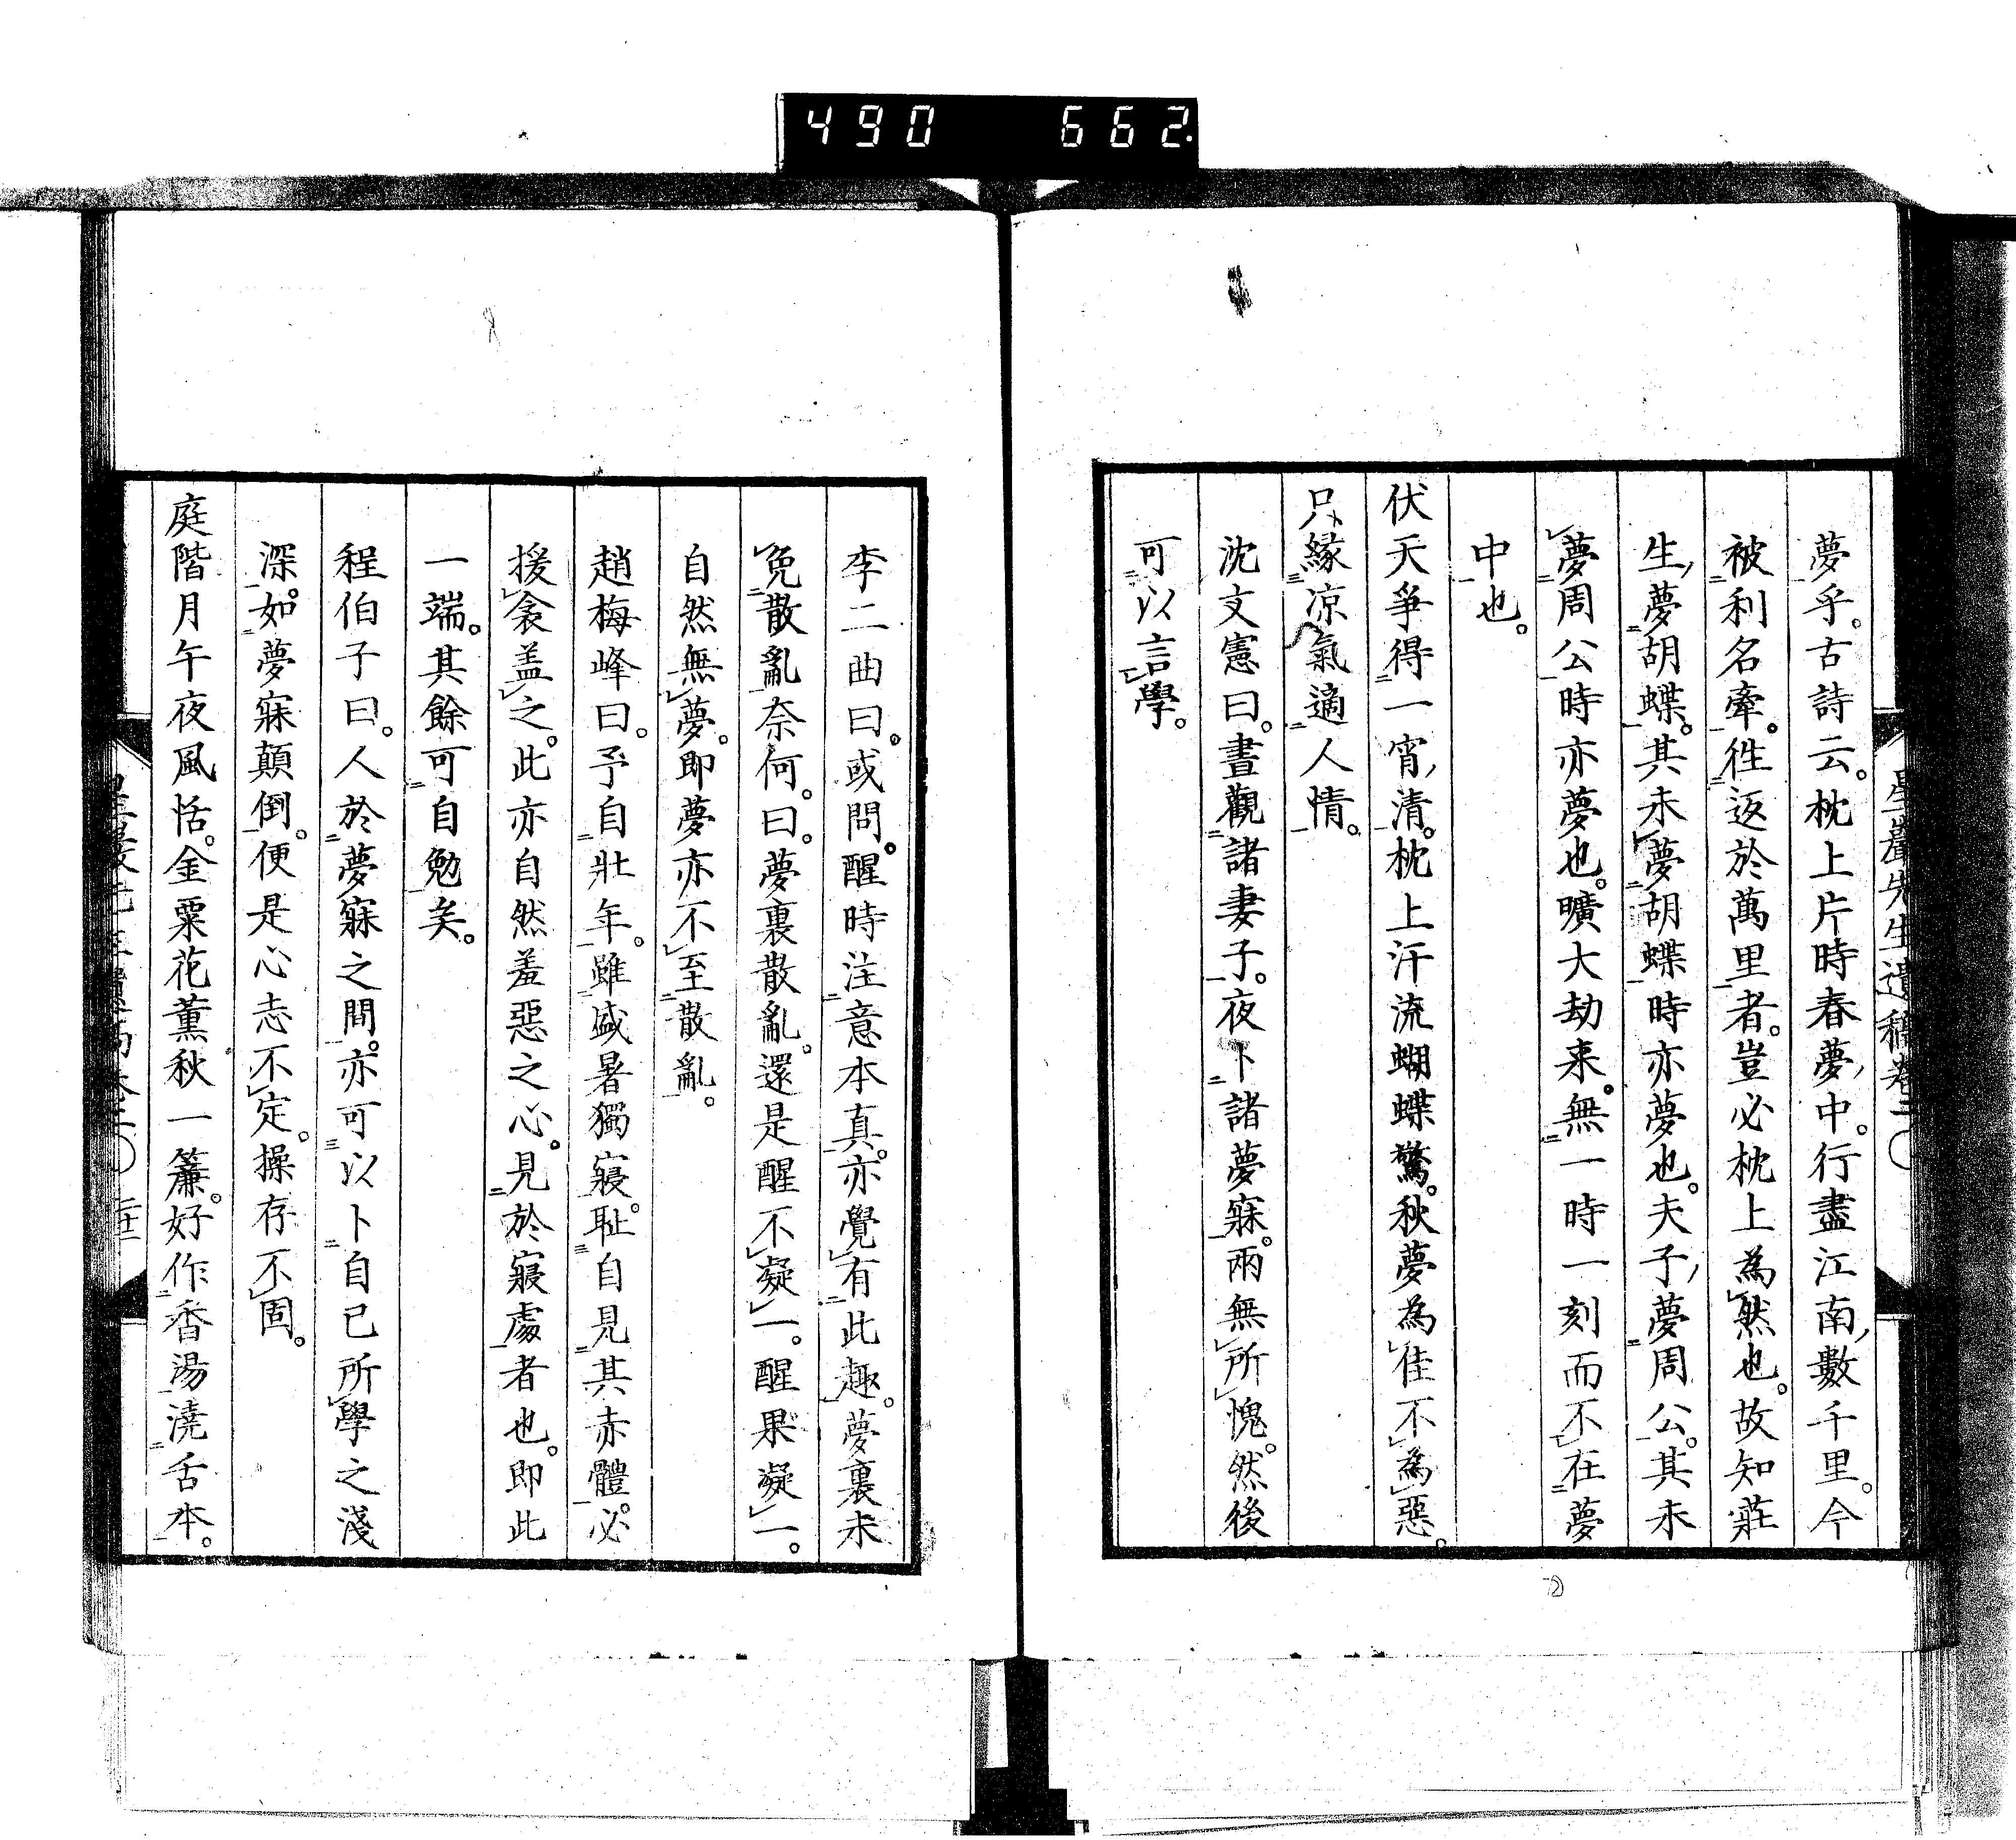 490 662
夢乎。古詩云。枕上片時春夢中。行盡江南數千里。今
被利名牽。徃返於萬里者。豈必枕上為然也。故知莊
生夢胡蝶。其未夢胡蝶時亦夢也。夫子夢周公。其未
夢周公時亦夢也。曠大劫来。無一時一刻而不在夢
中也。
伏天爭得一宵清。枕上汗流蝴蝶驚。秋夢為佳不為惡。
只緣凉氣適人情。
沈文憲曰。晝觀諸妻子。夜卜諸夢寐。兩無所愧。然後
可以言學。
李二曲曰。或問。醒時注意本真。亦覺有此趣。夢裏未
免散亂奈何。曰。夢裏散亂。還是醒不凝一。醒果凝一。
自然無夢。即夢亦不至散亂。
趙梅峰曰。予自壯年。雖盛暑獨寢。恥自見其赤體。必
援衾盖之。此亦自然羞惡之心。見於寢處者也。即此
一端。其餘可自勉矣。
程伯子曰。人於夢寐之間。亦可以卜自己所學之淺
深。如夢寐顛倒。便是心志不定。操存不固。
庭階月午夜風恬。金粟花薰秋一簾。好作香湯澆舌本。